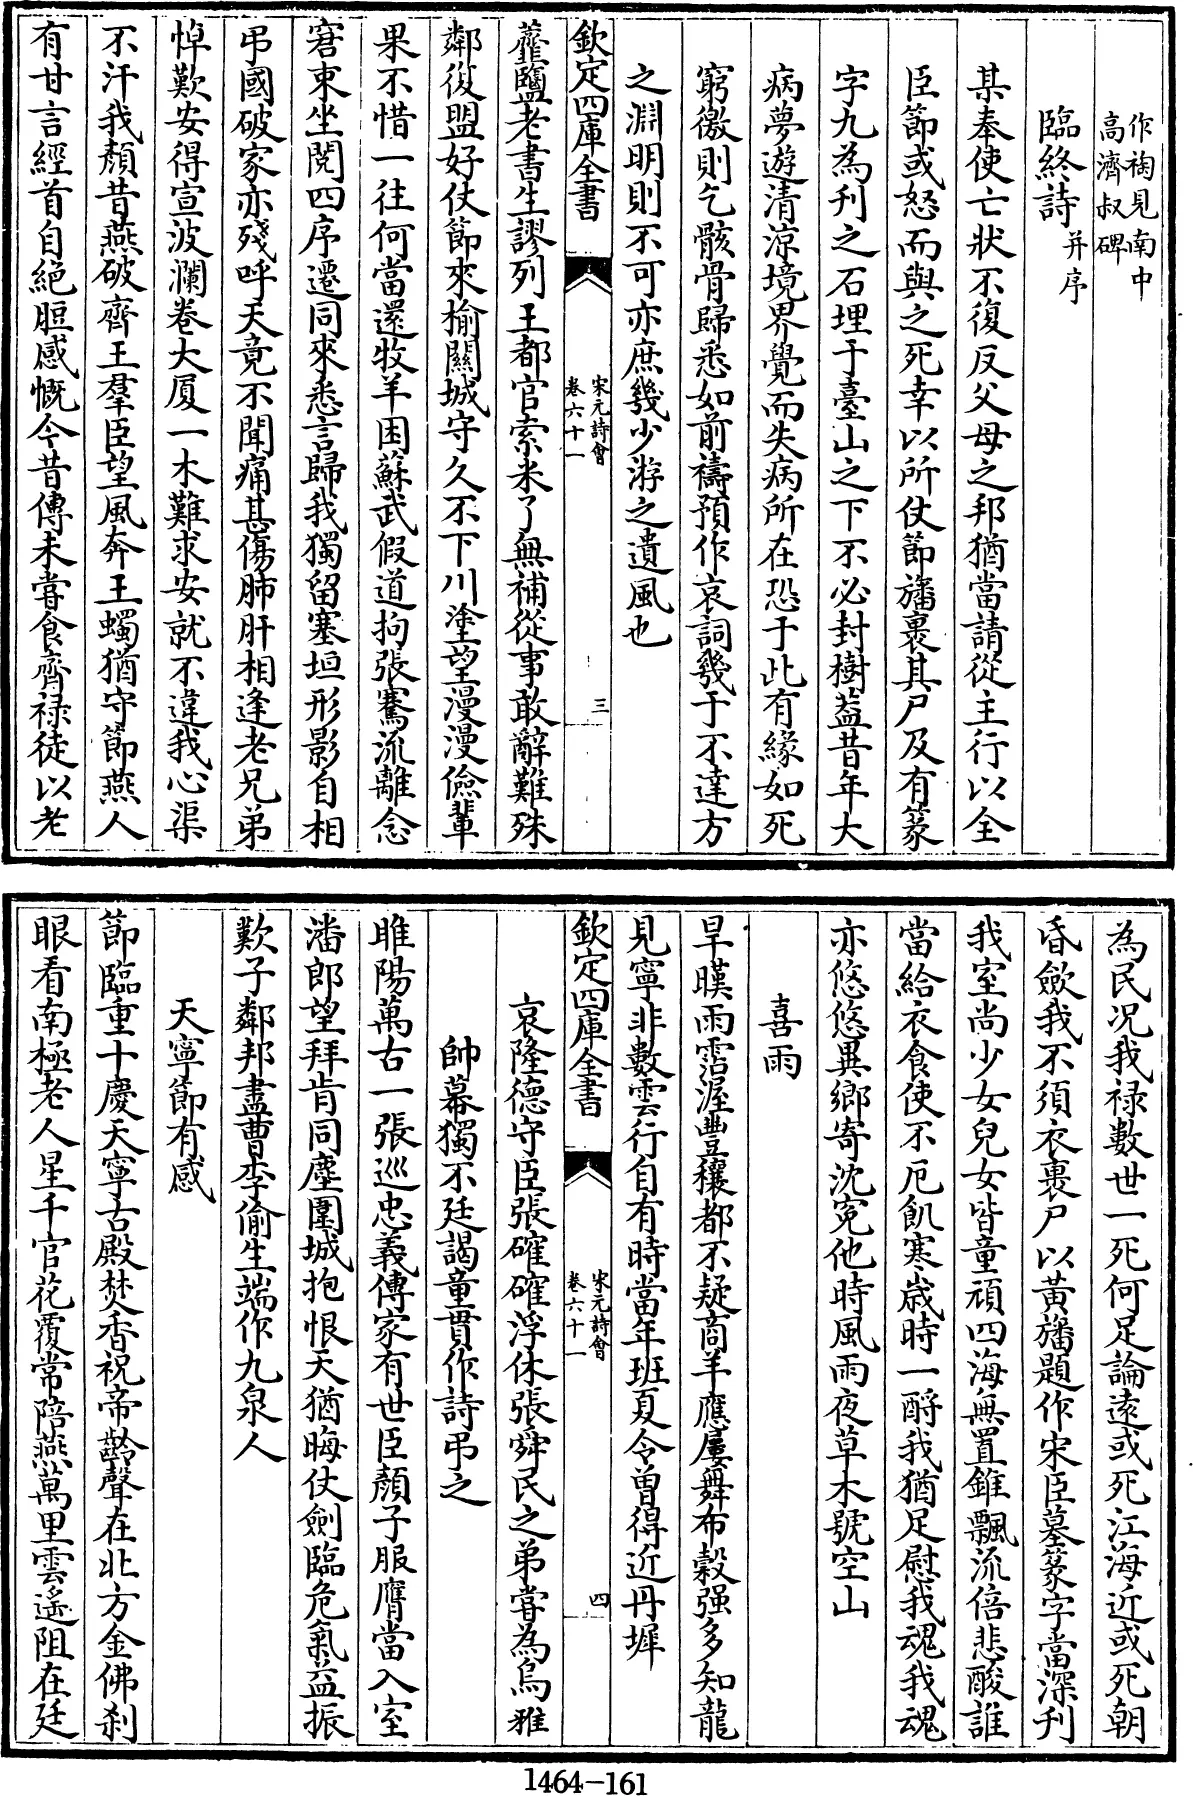 作裪見南中
高濟叔碑
臨終詩并序
某奉使亡狀不復反父母之邦猶當請從主行以全
臣節或怒而與之死幸以所仗節旛裹其尸及有篆
字九為刋之石埋于臺山之下不必封樹葢昔年大
病夢遊清涼境界覺而失病所在恐于此有緣如死
窮徼則乞骸骨歸悉如前禱預作哀詞㡬于不達方
之淵明則不可亦庶㡬少游之遺風也
欽定四庫全書
宋元詩會
卷六十一
三
虀鹽老書生謬列王都官索米了無補從事敢辭難殊
鄰復盟好仗節來榆關城守久不下川塗望漫漫儉輩
果不惜一往何當還牧羊困蘇武假道拘張騫流離念
窘束坐閱四序遷同來悉言歸我獨留塞垣形影自相
弔國破家亦殘呼天竟不聞痛甚傷肺肝相逢老兄弟
悼歎安得宣波瀾卷大厦一木難求安就不違我心渠
不汗我顏昔燕破齊王羣臣望風奔王蠋猶守節燕人
有甘言經首自絕脰感慨今昔傳未嘗食齊禄徒以老
為民况我禄數世一死何足論逺或死江海近或死朝
昏歛我不須衣裹尸以黄旛題作宋臣墓篆字當深刋
我室尚少女兒女皆童頑四海無置錐飄流倍悲酸誰
當給衣食使不厄飢寒嵗時一酹我猶足慰我魂我魂
亦悠悠異鄉寄沈寃他時風雨夜草木號空山
喜雨
旱暵雨霑渥豐穰都不疑商羊應屢舞布榖强多知龍
見寧非數雲行自有時當年班夏令曽得近丹墀
欽定四庫全書
宋元詩會
卷六十一
四
哀隆德守臣張確確浮休張舜民之弟嘗為烏雅
帥幕獨不廷謁童貫作詩弔之
睢陽萬古一張巡忠義傳家有世臣顏子服膺當入室
潘郎望拜肯同塵圍城抱恨天猶晦仗劍臨危氣益振
歎子鄰邦盡曹李偷生端作九泉人
天寧節有感
節臨重十慶天寧古殿焚香祝帝齡聲在北方金佛刹
眼看南極老人星千官花覆常陪燕萬里雲遙阻在廷
1464-161